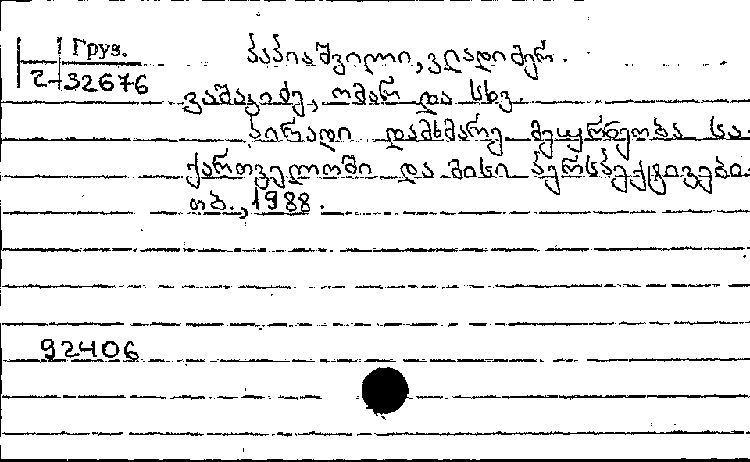 Груз.
2-32676
პაპიაშვილი, ვლადიმერ.
ვაშაკიძე, ომარ და სხვ.
პირადი დამხმარე მეურნეობა სა-
ქართველოში და მისი პერსპექტივები.
თბ., 1988.
92406